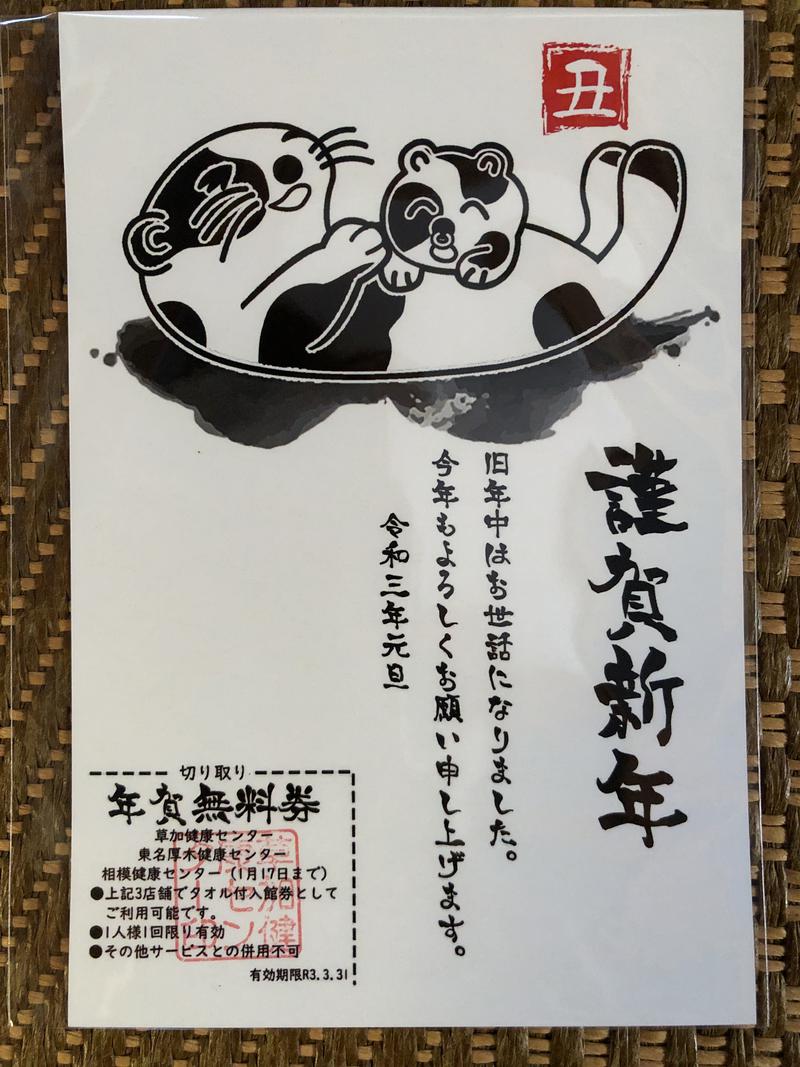 丑
謹賀新年
旧年中はお世話になりました。
今年もよろしくお願い申し上げます。
令和三年元旦
切り取り
年賀無料券
草加健康センター
東名厚木健康センター
相模健康センター（1月17日まで）
●上記3店舗でタオル付入館券として
ご利用可能です。
●1人様1回限り有効
●その他サービスとの併用不可
有効期限R3.3.31
草加健
康セン
ター印